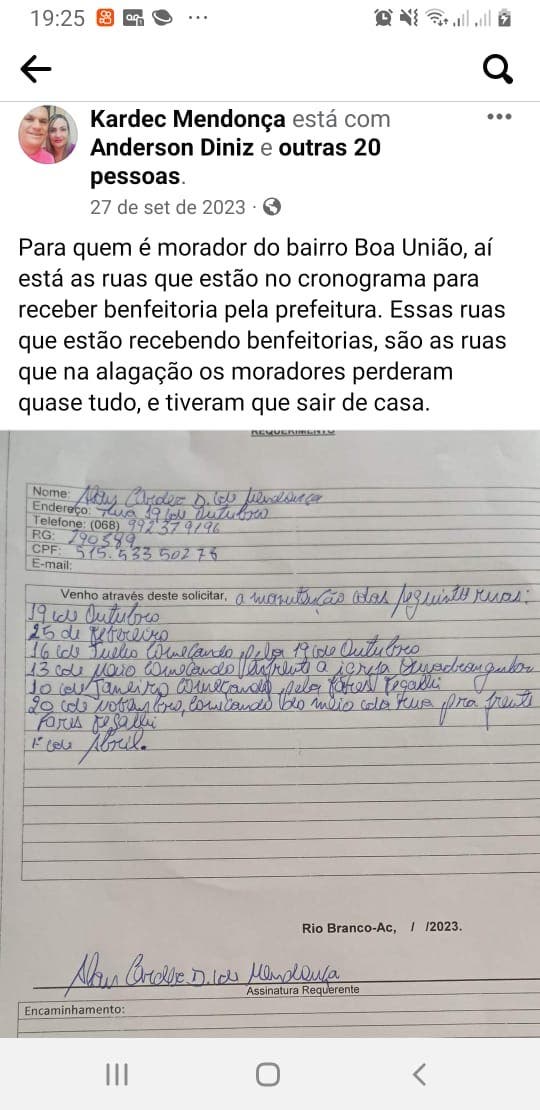 19:25
Kardec Mendonça está com
Anderson Diniz e outras 20
pessoas.
27 de set de 2023
Para quem é morador do bairro Boa União, aí
está as ruas que estão no cronograma para
receber benfeitoria pela prefeitura. Essas ruas
que estão recebendo benfeitorias, são as ruas
que na alagação os moradores perderam
quase tudo, e tiveram que sair de casa.
REQUERIMENTO
Nome: D. de Mendonça
Endereço: Rua 19 de Outubro
Telefone: (068) 992379196
RG: 290589
CPF: 515.533 502 78
E-mail:
Venho através deste solicitar, a das seguintes ruas:
19 de Outubro
25 de Fevereiro
16 de Julho Começando pela 19 de Outubro
13 de Maio Começando enfrente a igreja
10 de Janeiro Começando pela
20 de novembro, do meio da Rua pra frente
1º de Abril.
Rio Branco-Ac, / /2023.
D. de Mendonça
Assinatura Requerente
Encaminhamento: